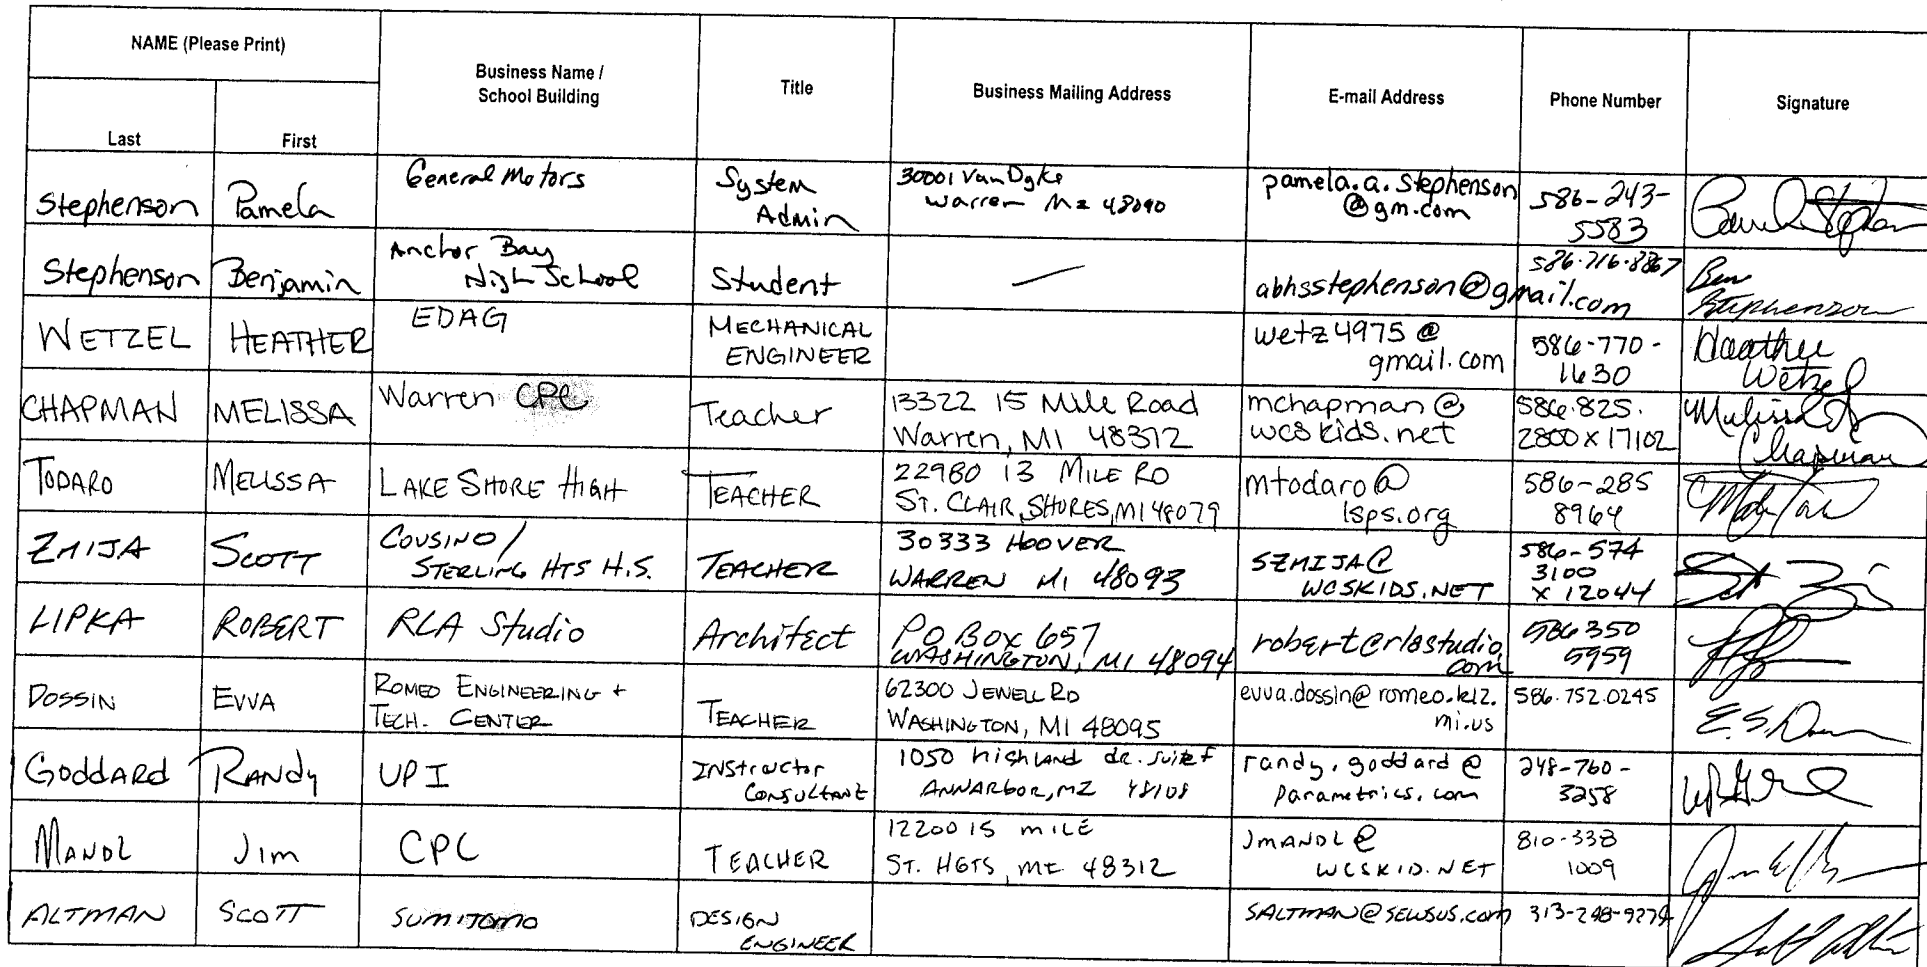 NAME (Please Print)
Last
First
Business Name /
School Building
Title
Business Mailing Address
E-mail Address
Phone Number
Signature
Stephenson
Pamela
General Motors
System
Admin
30001 Van Dyke
Warren MI 48090
pamela.a.stephenson
@gm.com
586-243-
5583
Stephenson
Benjamin
Anchor Bay
High School
Student
—
abhsstephenson@gmail.com
586.716.8867
Ben
Stephenson
WETZEL
HEATHER
EDAG
MECHANICAL
ENGINEER
wetz4975@
gmail.com
586-770-
1630
Heather
Wetzel
CHAPMAN
MELISSA
Warren CPC
Teacher
13322 15 Mile Road
Warren, MI 48312
mchapman@
wcskids.net
586.825.
2800 x 17102
Melissa
Chapman
TODARO
MELISSA
LAKE SHORE HIGH
TEACHER
22980 13 MILE RD
ST. CLAIR SHORES, MI 48079
mtodaro@
lsps.org
586-285
8964
ZMIJA
SCOTT
COUSINO/
STERLING HTS H.S.
TEACHER
30333 HOOVER
WARREN MI 48093
SZMIJA@
WCSKIDS.NET
586-574
3100
x 12044
LIPKA
ROBERT
RLA Studio
Architect
PO Box 657
WASHINGTON, MI 48094
robert@rlastudio
com
586 350
5959
DOSSIN
EVVA
ROMEO ENGINEERING +
TECH. CENTER
TEACHER
62300 JEWELL RD
WASHINGTON, MI 48095
evva.dossin@romeo.k12.
mi.us
586.752.0245
GODDARD
RANDY
UPI
INStructor
CONSULTANT
1050 highland dr. suite f
ANNARbor, MI 48108
randy.goddard@
parametrics.com
248-760-
3258
MANDL
Jim
CPC
TEACHER
12200 15 MILE
ST. HGTS, MI 48312
JMANDL@
WCSKID.NET
810-338
1009
ALTMAN
SCOTT
SUMITOMO
DESIGN
ENGINEER
SALTMAN@SEWSUS.com
313-248-9274